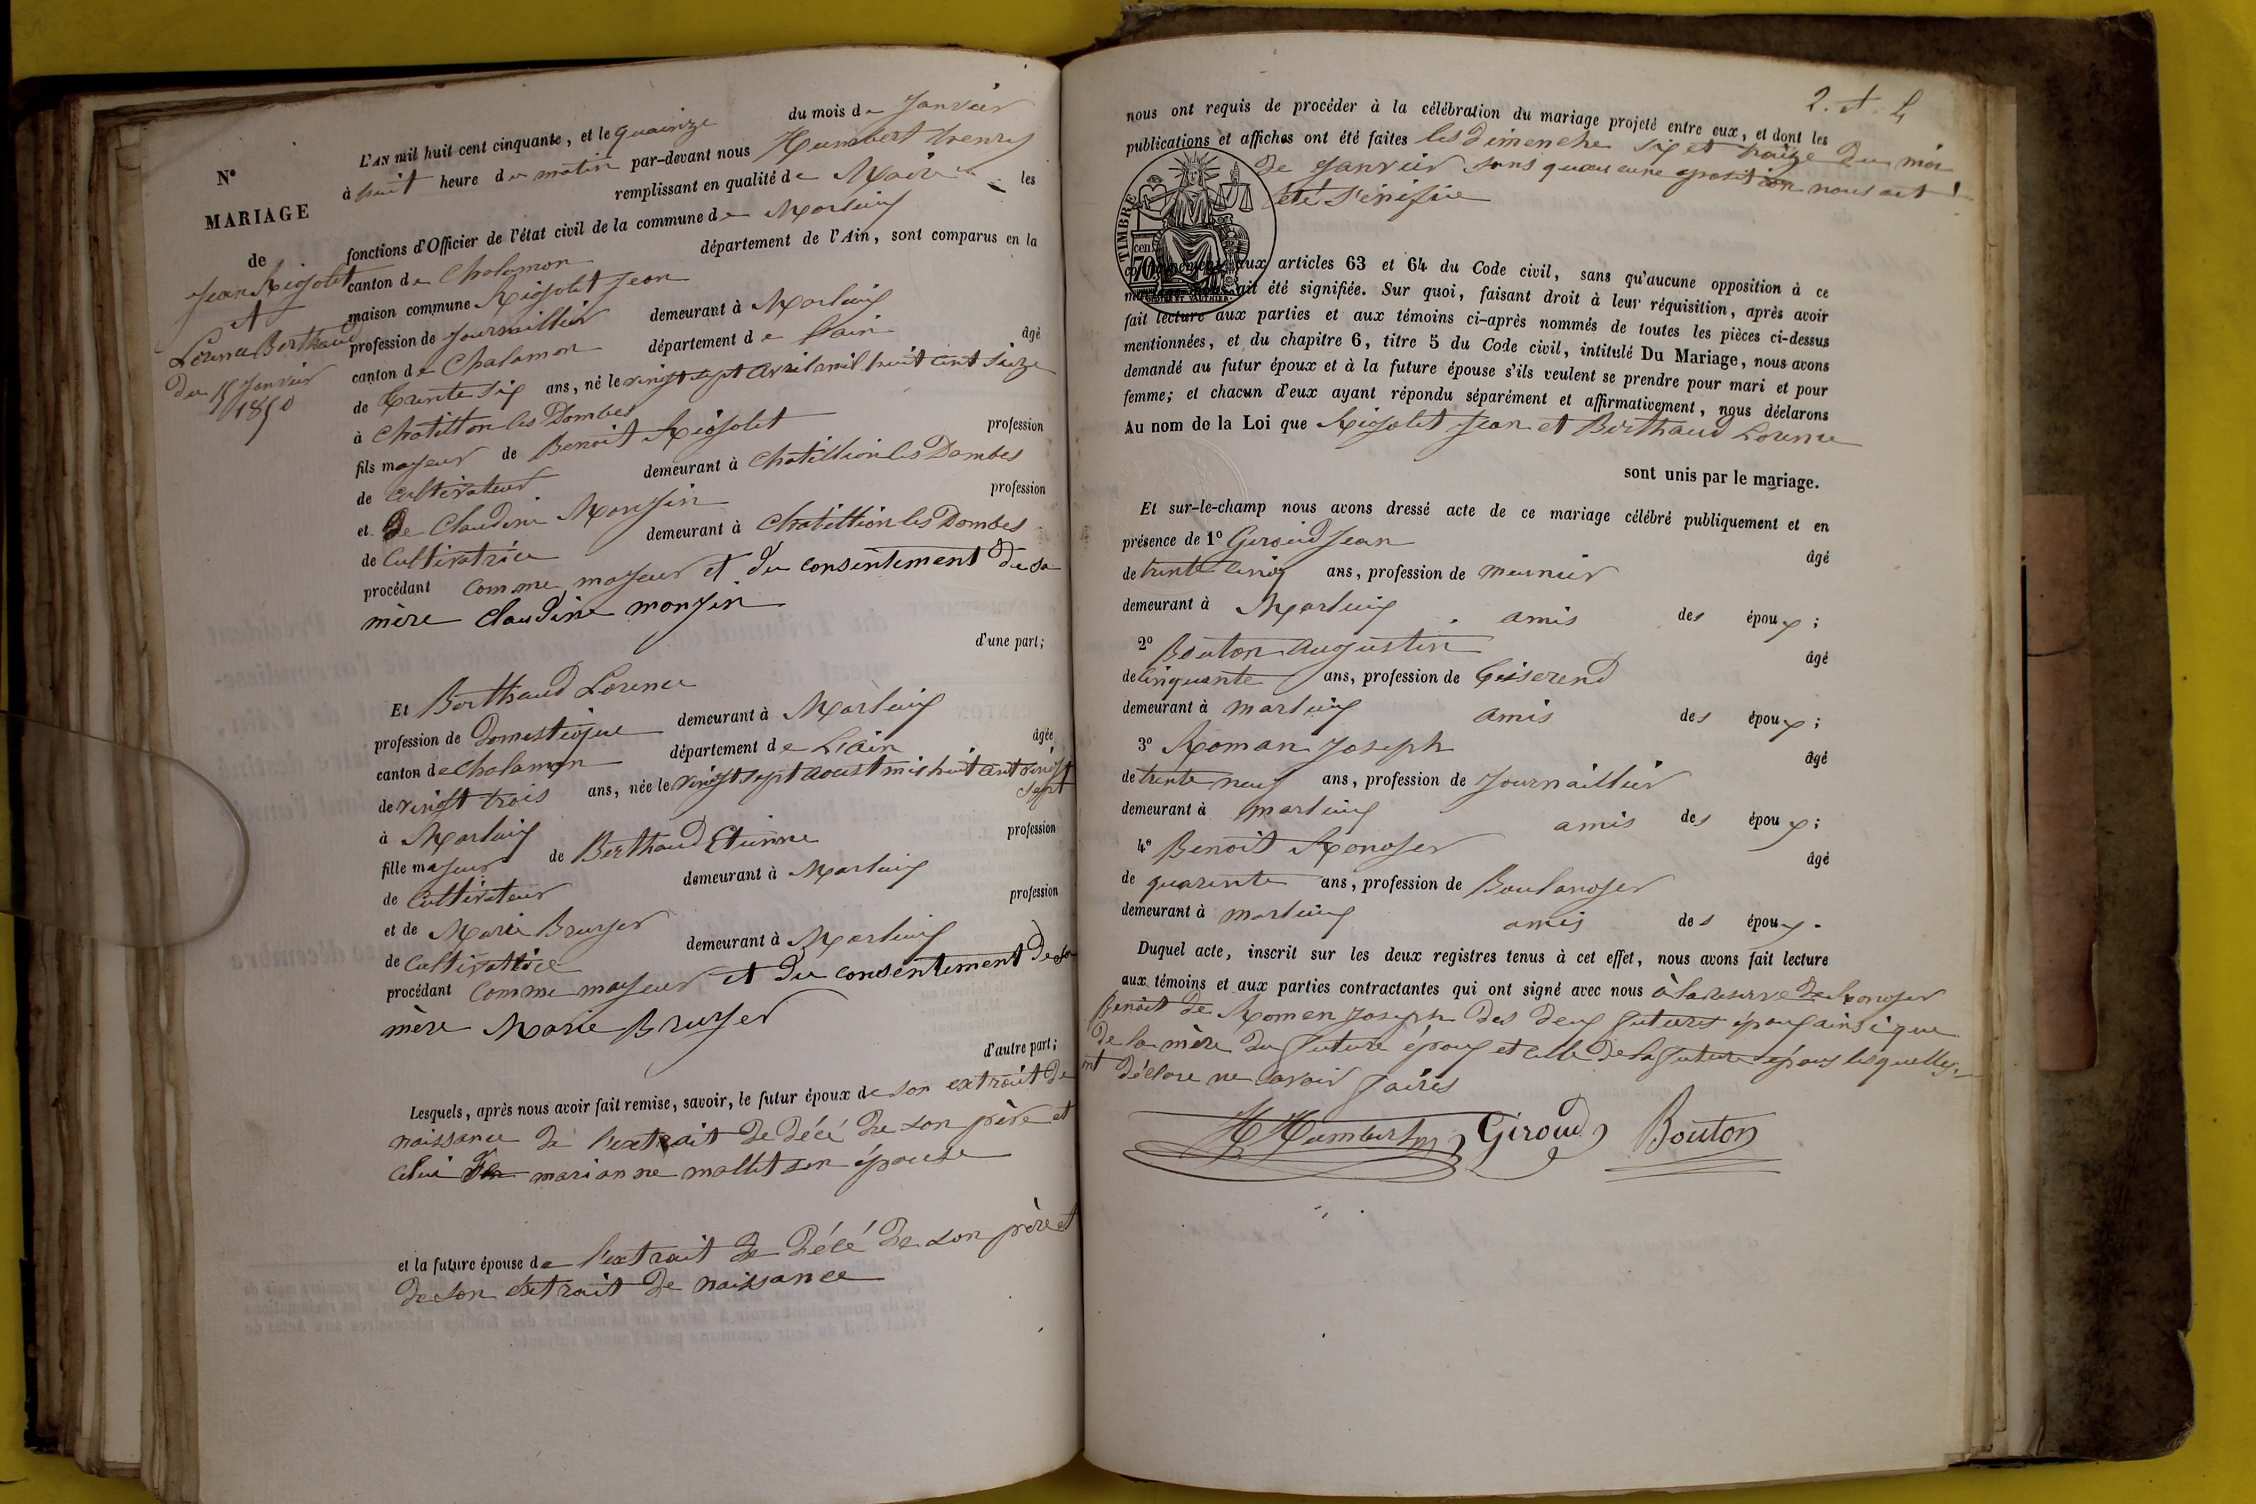 N°
MARIAGE
de
Jean Rigolet
et
Lorence Berthaud
du 15 Janvier
1850
L'AN mil huit cent cinquante, et le quainze du mois de Janvier
à huit heure du matin par-devant nous Humbert henry
remplissant en qualité de Maire les
fonctions d'Officier de l'état civil de la commune de Marlieux
canton de Chalamon département de l'Ain, sont comparus en la
maison commune Rigolet Jean
profession de Journaillier demeurant à Marlieux
canton de Chalamon département de Lain âgé
de trente six ans, né le vingt sept avril mil huit cent sieze
à Chatillon les Dombes
fils majeur de Benoit Rigolet profession
de Cultivateur demeurant à Chatillion les Dombes
et de Claudine Monsin profession
de Cultivatrice demeurant à Chatillion les Dombes
procédant comme majeur et du consentement de sa
mère Claudine monsin
d'une part;
Et Berthaud Lorence
profession de Domestique demeurant à Marlieux
canton de Chalamon département de Lain âgée
de vingt trois ans, née le vingt sept aoust mil huit cent vingt
sept
à Marlieux
fille majeur de Berthaud Etienne profession
de Cultivateur demeurant à Marlieux
et de Marie Bruyer profession
de Cultivatrice demeurant à Marlieux
procédant comme majeur et du consentement de sa
mère Marie Bruyer
d'autre part;
Lesquels, après nous avoir fait remise, savoir, le futur époux de son extrait de
naissance de l'extrait de décé de son père et
celui de marianne mallet son épouse
et la future épouse de l'extrait de décé de son père et
de son extrait de naissance
2. et. 4
nous ont requis de procéder à la célébration du mariage projeté entre eux, et dont les
publications et affiches ont été faites les dimenche six et traize du moi
de Janvier sans qu'aucune oposition nous ait
été s'énifiée
TIMBRE
70 cen
conformément aux articles 63 et 64 du Code civil, sans qu'aucune opposition à ce
mariage nous ait été signifiée. Sur quoi, faisant droit à leur réquisition, après avoir
fait lecture aux parties et aux témoins ci-après nommés de toutes les pièces ci-dessus
mentionnées, et du chapitre 6, titre 5 du Code civil, intitulé Du Mariage, nous avons
demandé au futur époux et à la future épouse s'ils veulent se prendre pour mari et pour
femme; et chacun d'eux ayant répondu séparément et affirmativement, nous déclarons
Au nom de la Loi que Rigolet Jean et Berthaud Lorence
sont unis par le mariage.
Et sur-le-champ nous avons dressé acte de ce mariage célébré publiquement et en
présence de 1° Giroud Jean âgé
de trente cinq ans, profession de meunier
demeurant à Marlieux amis des époux;
2° Bouton augustin âgé
de Cinquante ans, profession de
demeurant à marlieux amis des époux;
3° Roman Joseph âgé
de trente neuf ans, profession de Journaillier
demeurant à marlieux amis des époux;
4° Benoit Monoyer âgé
de quarente ans, profession de Boulanger
demeurant à marlieux amis des époux.
Duquel acte, inscrit sur les deux registres tenus à cet effet, nous avons fait lecture
aux témoins et aux parties contractantes qui ont signé avec nous à la reserve de Monoyer
Benoit de Romen Joseph des deux futures époux ainsi que
de la mère du future époux et celle de la future épous lesquelles
ont déclare ne savoir faires
H Humbert Giroud Bouton